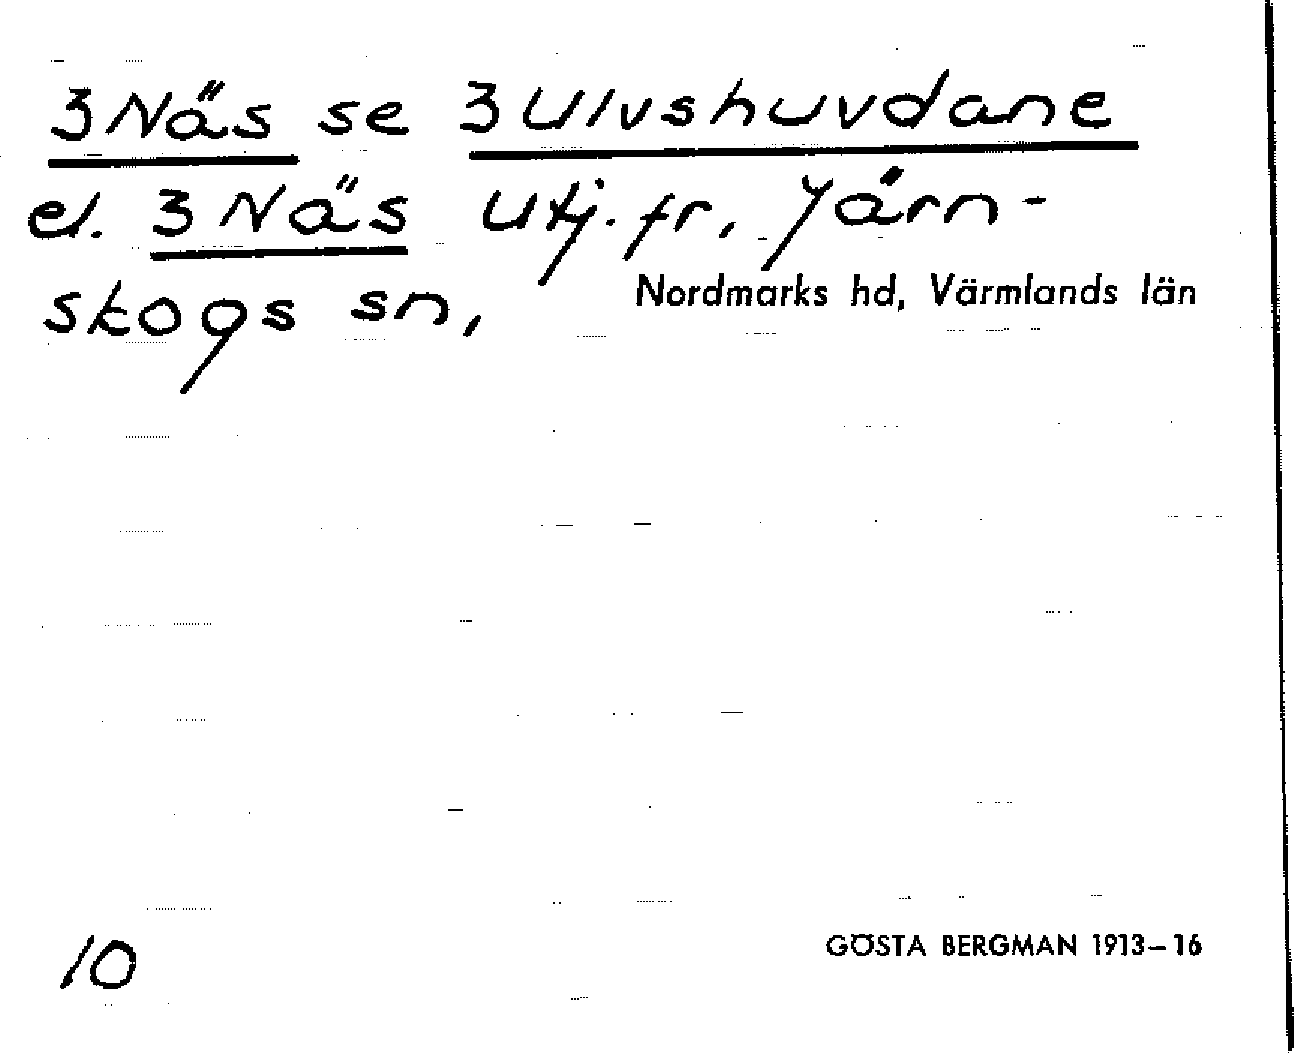 3 Näs se 3 Ulvshuvdane
el. 3 Näs utj. fr. Järn-
skogs sn, Nordmarks hd, Värmlands län
10 GÖSTA BERGMAN 1913–16